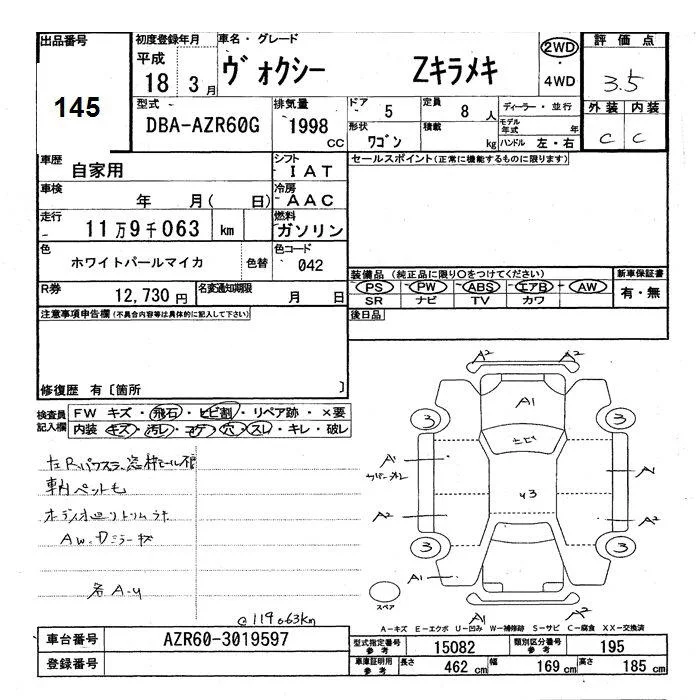 出品番号
145
初度登録年月
平成
18 3 月
車名・グレード
ヴォクシー Zキラメキ
2WD
・
4WD
評価点
3.5
外装 内装
C C
型式
DBA-AZR60G
排気量
1998
CC
ドア
5
定員
8 人
ディーラー・並行
形状
ワゴン
積載
kg
モデル
年式 年
ハンドル 左・右
車歴
自家用
シフト
IAT
セールスポイント(正常に機能するものに限ります)
車検
年 月( 日)
冷房
AAC
走行
11万9千063 km
燃料
ガソリン
色
ホワイトパールマイカ
色替
色コード
042
装備品(純正品に限り○をつけてください)
PS ・ PW ・ ABS ・ エアB ・ AW
SR ナビ TV カワ
新車保証書
有・無
R券
12,730 円
名変通知期限
月 日
後日品
注意事項申告欄(不具合内容等は具体的に記入して下さい)
修復歴 有〔箇所 〕
検査員
記入欄
FW キズ・飛石・ヒビ割・リペア跡・×要
内装 キズ・汚レ・コゲ・穴・スレ・キレ・破レ
左Rパワスラ、窓枠モール不良
車内ペットも
オーディオ廻りトリムウキ
AW・Dミラーキズ
各A-U
@119063km
A2 A2
A1
3 3
ヒビ
A1
A
U3
A2
A2
3 3
A1
スペア
A1 A2
A-キズ E-エクボ U-凹み W-補修跡 S-サビ C-腐食 XX-交換済
車台番号
AZR60-3019597
登録番号
型式指定番号
参考
15082
類別区分番号
参考
195
車庫証明用
参考
長さ
462 cm
幅
169 cm
高さ
185 cm